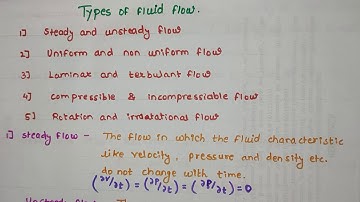 Types of fluid flow.
1] Steady and unsteady flow
2] Uniform and non uniform flow
3] Laminar and terbulant flow
4] compressible & Incompressiable flow
5] Rotation and irrotational flow
1] steady flow - The flow in which the fluid characteristic
like velocity, pressure and density etc.
do not change with time.
(∂V/∂t) = (∂P/∂t) = (∂ρ/∂t) = 0